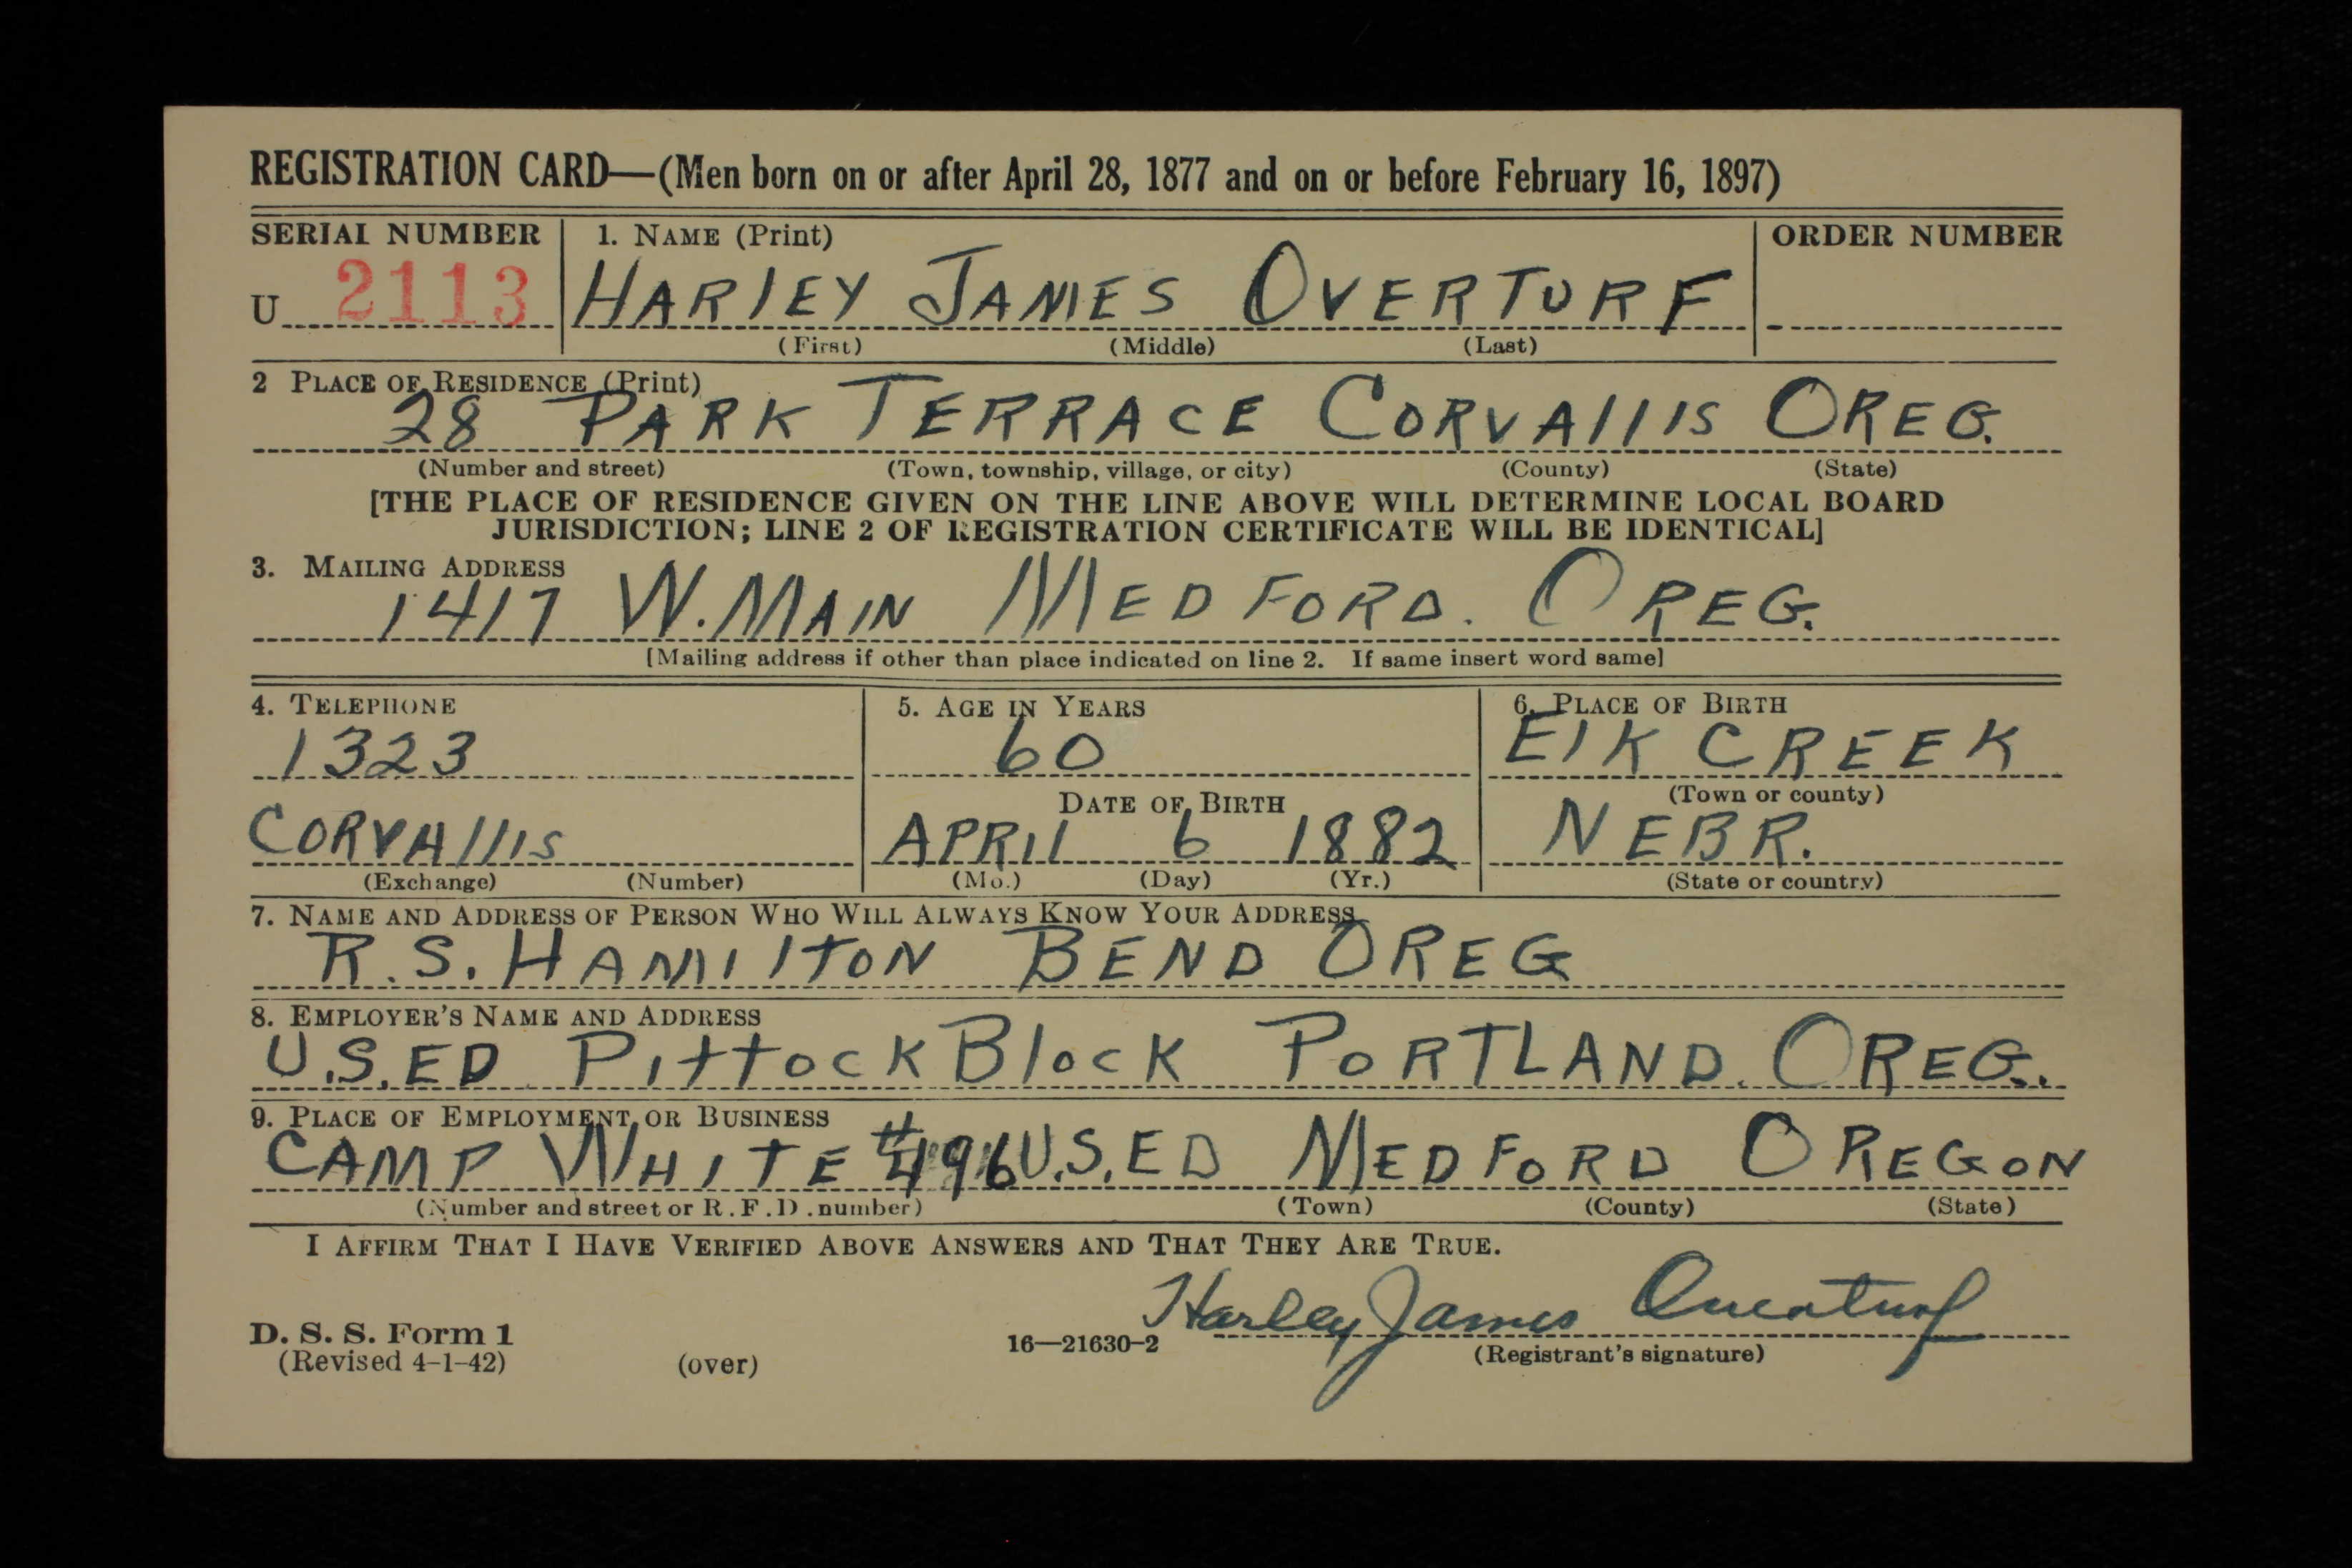 REGISTRATION CARD—(Men born on or after April 28, 1877 and on or before February 16, 1897)
SERIAL NUMBER 1. NAME (Print) ORDER NUMBER
U 2113 HARLEY JAMES OVERTURF
(First) (Middle) (Last)
2 PLACE OF RESIDENCE (Print)
28 PARK TERRACE CORVALLIS OREG.
(Number and street) (Town, township, village, or city) (County) (State)
[THE PLACE OF RESIDENCE GIVEN ON THE LINE ABOVE WILL DETERMINE LOCAL BOARD
JURISDICTION; LINE 2 OF REGISTRATION CERTIFICATE WILL BE IDENTICAL]
3. MAILING ADDRESS
1417 W. MAIN MEDFORD. OREG.
[Mailing address if other than place indicated on line 2. If same insert word same]
4. TELEPHONE 5. AGE IN YEARS 6. PLACE OF BIRTH
1323 60 ElK CREEK
DATE OF BIRTH (Town or county)
CORVAllIS APRIl 6 1882 NEBR.
(Exchange) (Number) (Mo.) (Day) (Yr.) (State or country)
7. NAME AND ADDRESS OF PERSON WHO WILL ALWAYS KNOW YOUR ADDRESS
R.S. HAMIlTON BEND OREG
8. EMPLOYER'S NAME AND ADDRESS
U.S.ED PittocK BlocK PORTLAND. OREG.
9. PLACE OF EMPLOYMENT OR BUSINESS
CAMP WHITE #496 U.S.ED MEDFORD OREGON
(Number and street or R.F.D. number) (Town) (County) (State)
I AFFIRM THAT I HAVE VERIFIED ABOVE ANSWERS AND THAT THEY ARE TRUE.
Harley James Overturf
D. S. S. Form 1 16—21630-2 (Registrant's signature)
(Revised 4-1-42) (over)